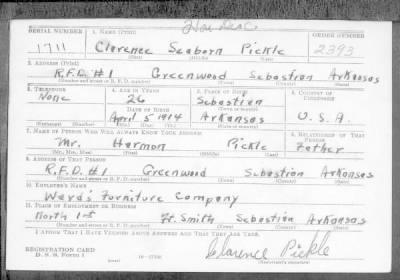 SERIAL NUMBER 1. NAME (Print) ORDER NUMBER
1711 Clarence Seaborn Pickle 2393
(First) (Middle) (Last)
2. ADDRESS (Print)
R.F.D. #1 Greenwood Sebastian Arkansas
(Number and street or R. F. D. number) (Town) (County) (State)
3. TELEPHONE 4. AGE IN YEARS 5. PLACE OF BIRTH 6. COUNTRY OF CITIZENSHIP
None 26 Sebastian
DATE OF BIRTH
April 5 1914 Arkansas U.S.A.
7. NAME OF PERSON WHO WILL ALWAYS KNOW YOUR ADDRESS 8. RELATIONSHIP OF THAT PERSON
Mr. Harmon Pickle Father
(Mr., Mrs., Miss) (First) (Middle) (Last)
9. ADDRESS OF THAT PERSON
R.F.D. #1 Greenwood Sebastian Arkansas
(Number and street or R. F. D. number) (Town) (County) (State)
10. EMPLOYER'S NAME
Ward's Furniture Company
11. PLACE OF EMPLOYMENT OR BUSINESS
North 1st Ft. Smith Sebastian Arkansas
(Number and street or R. F. D. number) (Town) (County) (State)
I AFFIRM THAT I HAVE VERIFIED ABOVE ANSWERS AND THAT THEY ARE TRUE.
REGISTRATION CARD
D. S. S. Form 1
Clarence Pickle
(Registrant's signature)